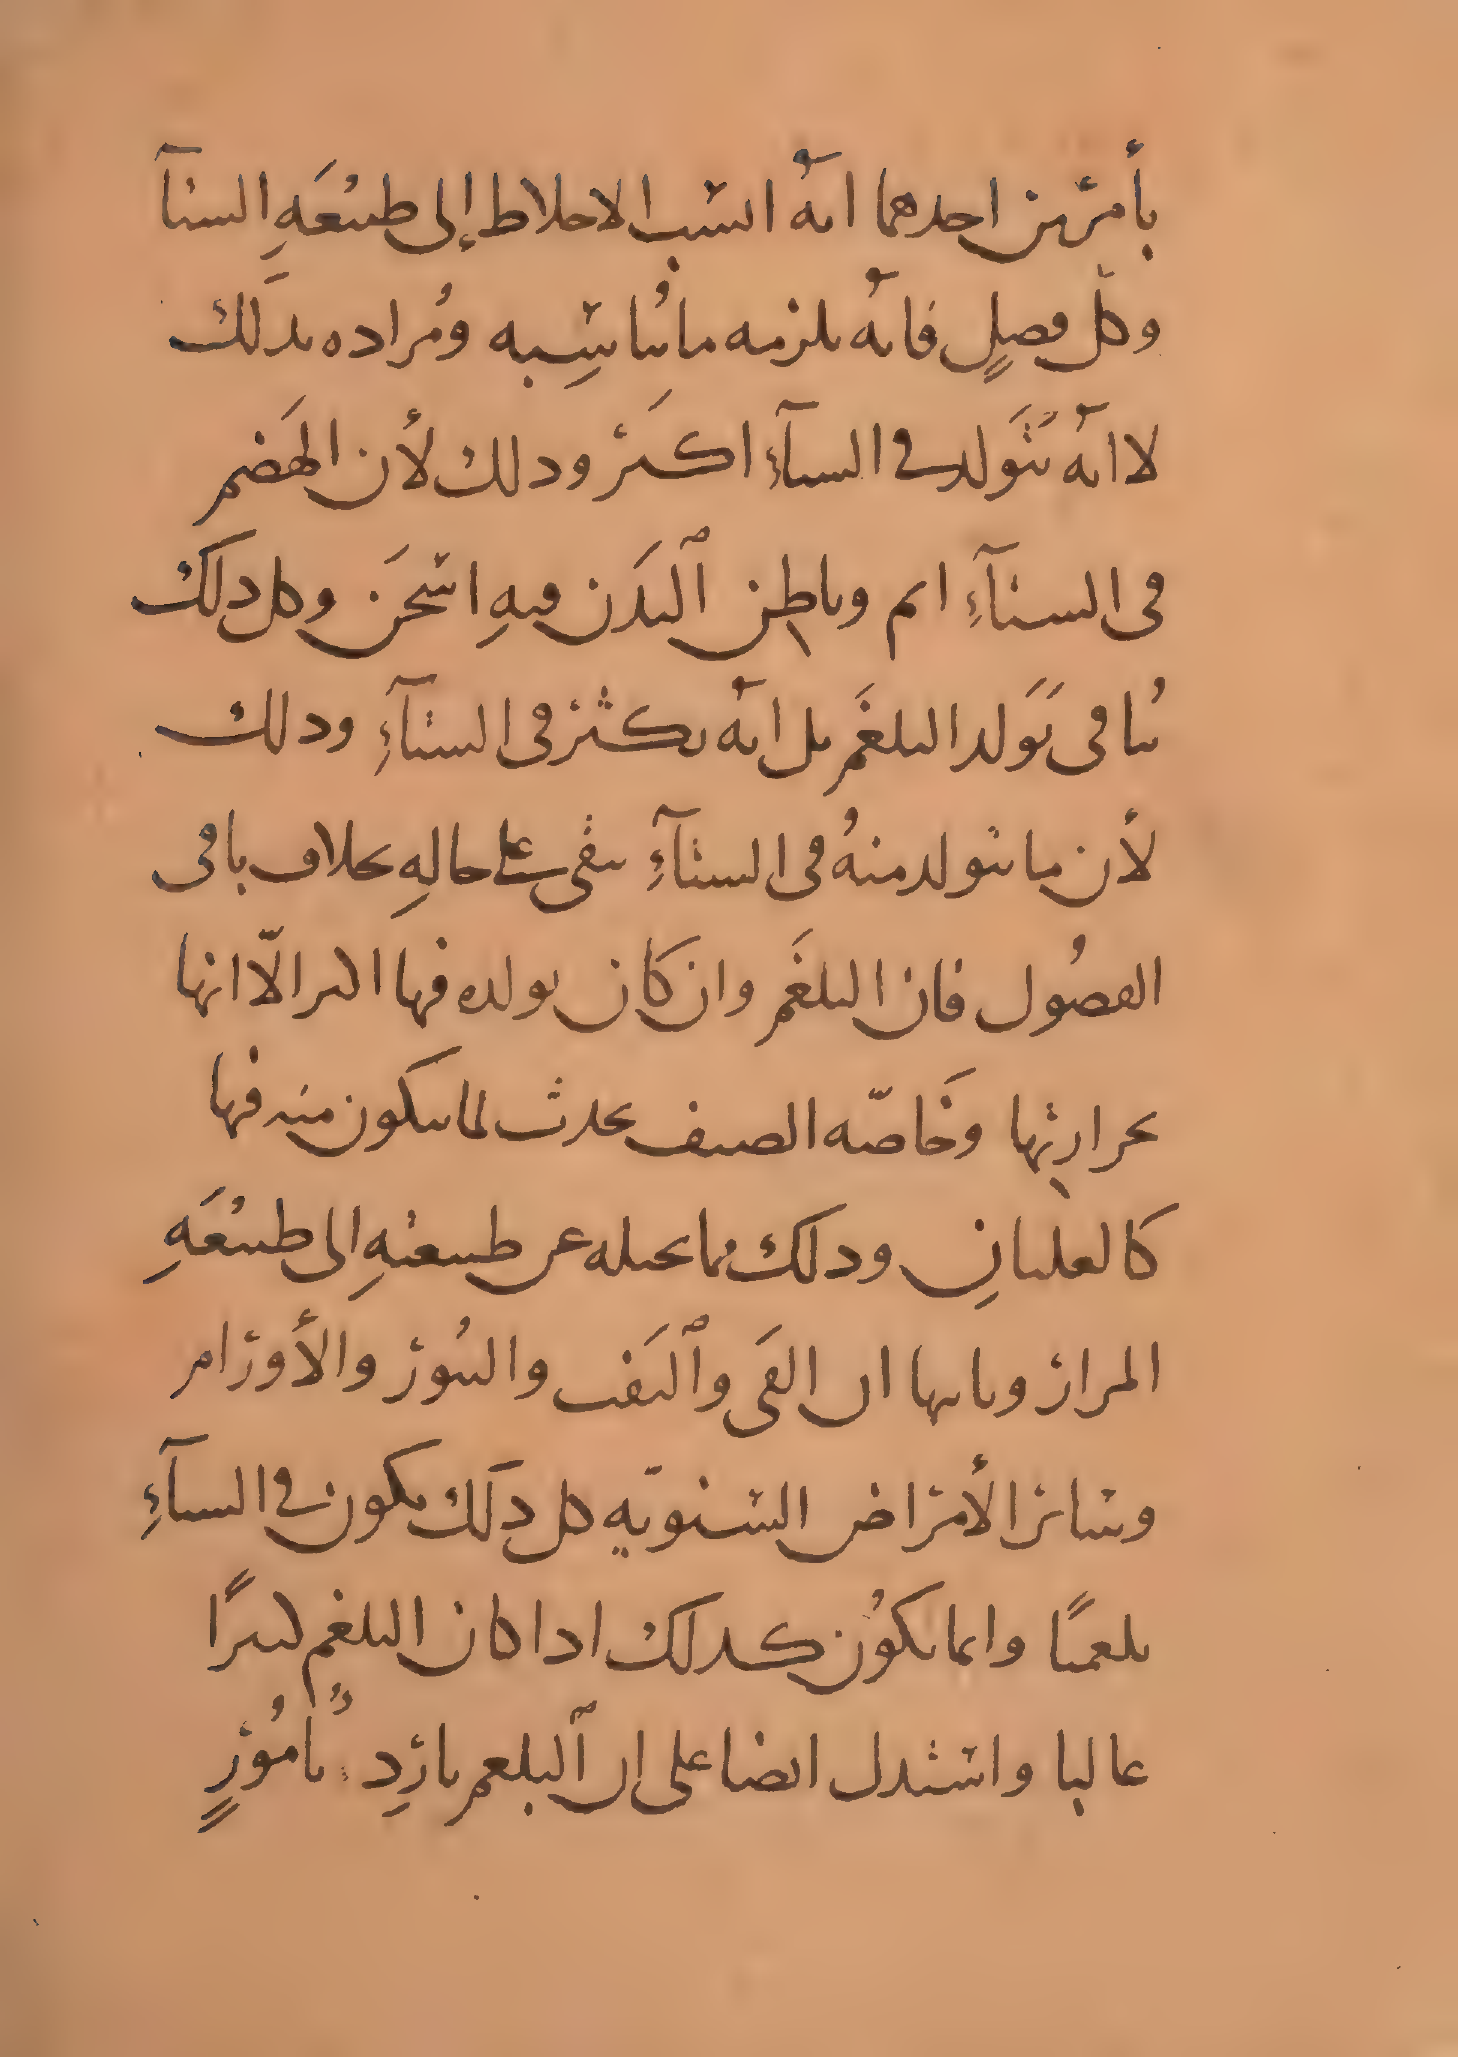 بأمرين احدهما انهُ انسب الاخلاط إلى طبيعَةِ الشتآ
وكلّ فصلٍ فانهُ يلزمه ما يُناسِبه ومُراده بذلك
لا انه يَتَولد في الشتآءِ اكثَر وذلك لأن الهَضم
في الشتآءِ اتم وباطِن ٱلبدَن فيهِ اسخَن وكل ذلك
يُنافي تَوَلد البلغَم بل انه يكثر في الشتآءِ وذلك
لأن ما يتولد منهُ في الشتآءِ يبقى على حالهِ بخلاف باقي
الفصُول فان البلغَم وان كان تولده فيها اكثر الّا انها
بحرارتِها وخَاصّه الصيف يحدث لما يتكون منه فيها
كالغليانِ وذلك مما يحيله عن طبيعتهِ الى طبيعَةِ
المرار وثانيها ان القى وٱلنَفث والبثُور والأورام
وسائر الأمراض الشتويّه كل ذلك يكون في الشتآءِ
بلغميًا وانما يكُون كذلك اذا كان البلغم كثيرًا
غالبا واستدل ايضا على ان ٱلبلغم باردِ بأمُورٍ